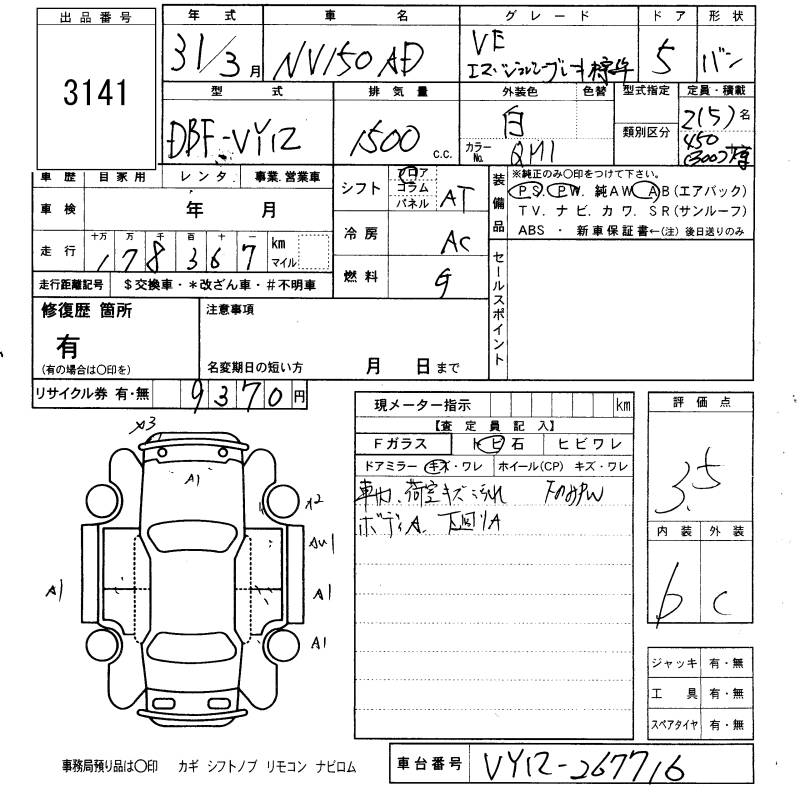 出品番号 年式 車名 グレード ドア 形状
3141 31/3月 NV150 AD VE 5 バン
エマージェンシーブレーキ標準
型式 排気量 外装色 色替 型式指定 定員・積載
DBF-VY12 1500 c.c. 白 2(5)名
カラーNo. QM1 類別区分 450
(300)
車歴 自家用 レンタ. 事業.営業車
シフト フロア コラム パネル AT
車検 年 月
冷房 AC
走行 十万 万 千 百 十 一 km マイル
178367
燃料 G
走行距離記号 $交換車・*改ざん車・#不明車
装備品 ※純正のみ〇印をつけて下さい。
PS. PW. 純AW. AB(エアバック)
TV. ナビ. カワ. SR(サンルーフ)
ABS ・ 新車保証書←(注) 後日送りのみ
修復歴 箇所 注意事項
有
(有の場合は〇印を) 名変期日の短い方 月 日まで
セールスポイント
リサイクル券 有・無 9370円
現メーター指示 km
【査定員記入】
Fガラス トビ石 ヒビワレ
ドアミラー キズ・ワレ ホイール(CP) キズ・ワレ
車内、荷室キズ汚れ
ボディA 下回りA
評価点
3.5
内装 外装
b c
X3
A1
X2
AU1
A1 A1
A1
ジャッキ 有・無
工具 有・無
スペアタイヤ 有・無
事務局預り品は〇印 カギ シフトノブ リモコン ナビロム
車台番号 VY12-267716